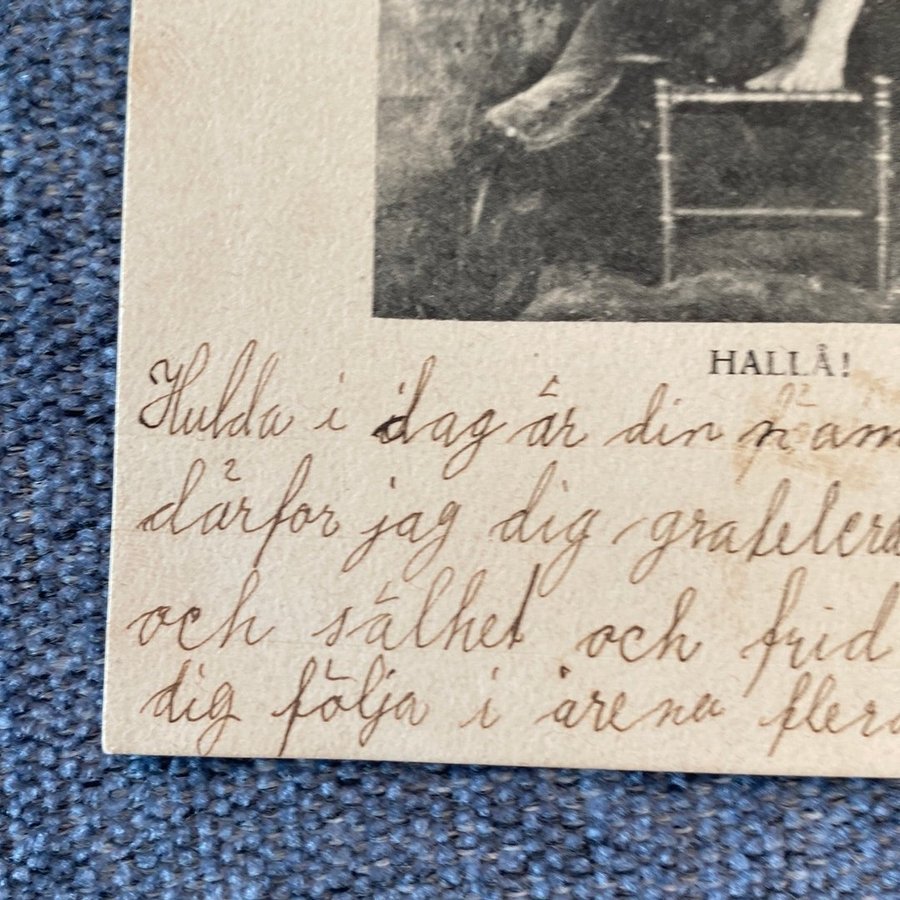 HALLÅ!
Hulda i dag är din nam
därfor jag dig gratelera
och sälhet och frid
dig följa i årena flera